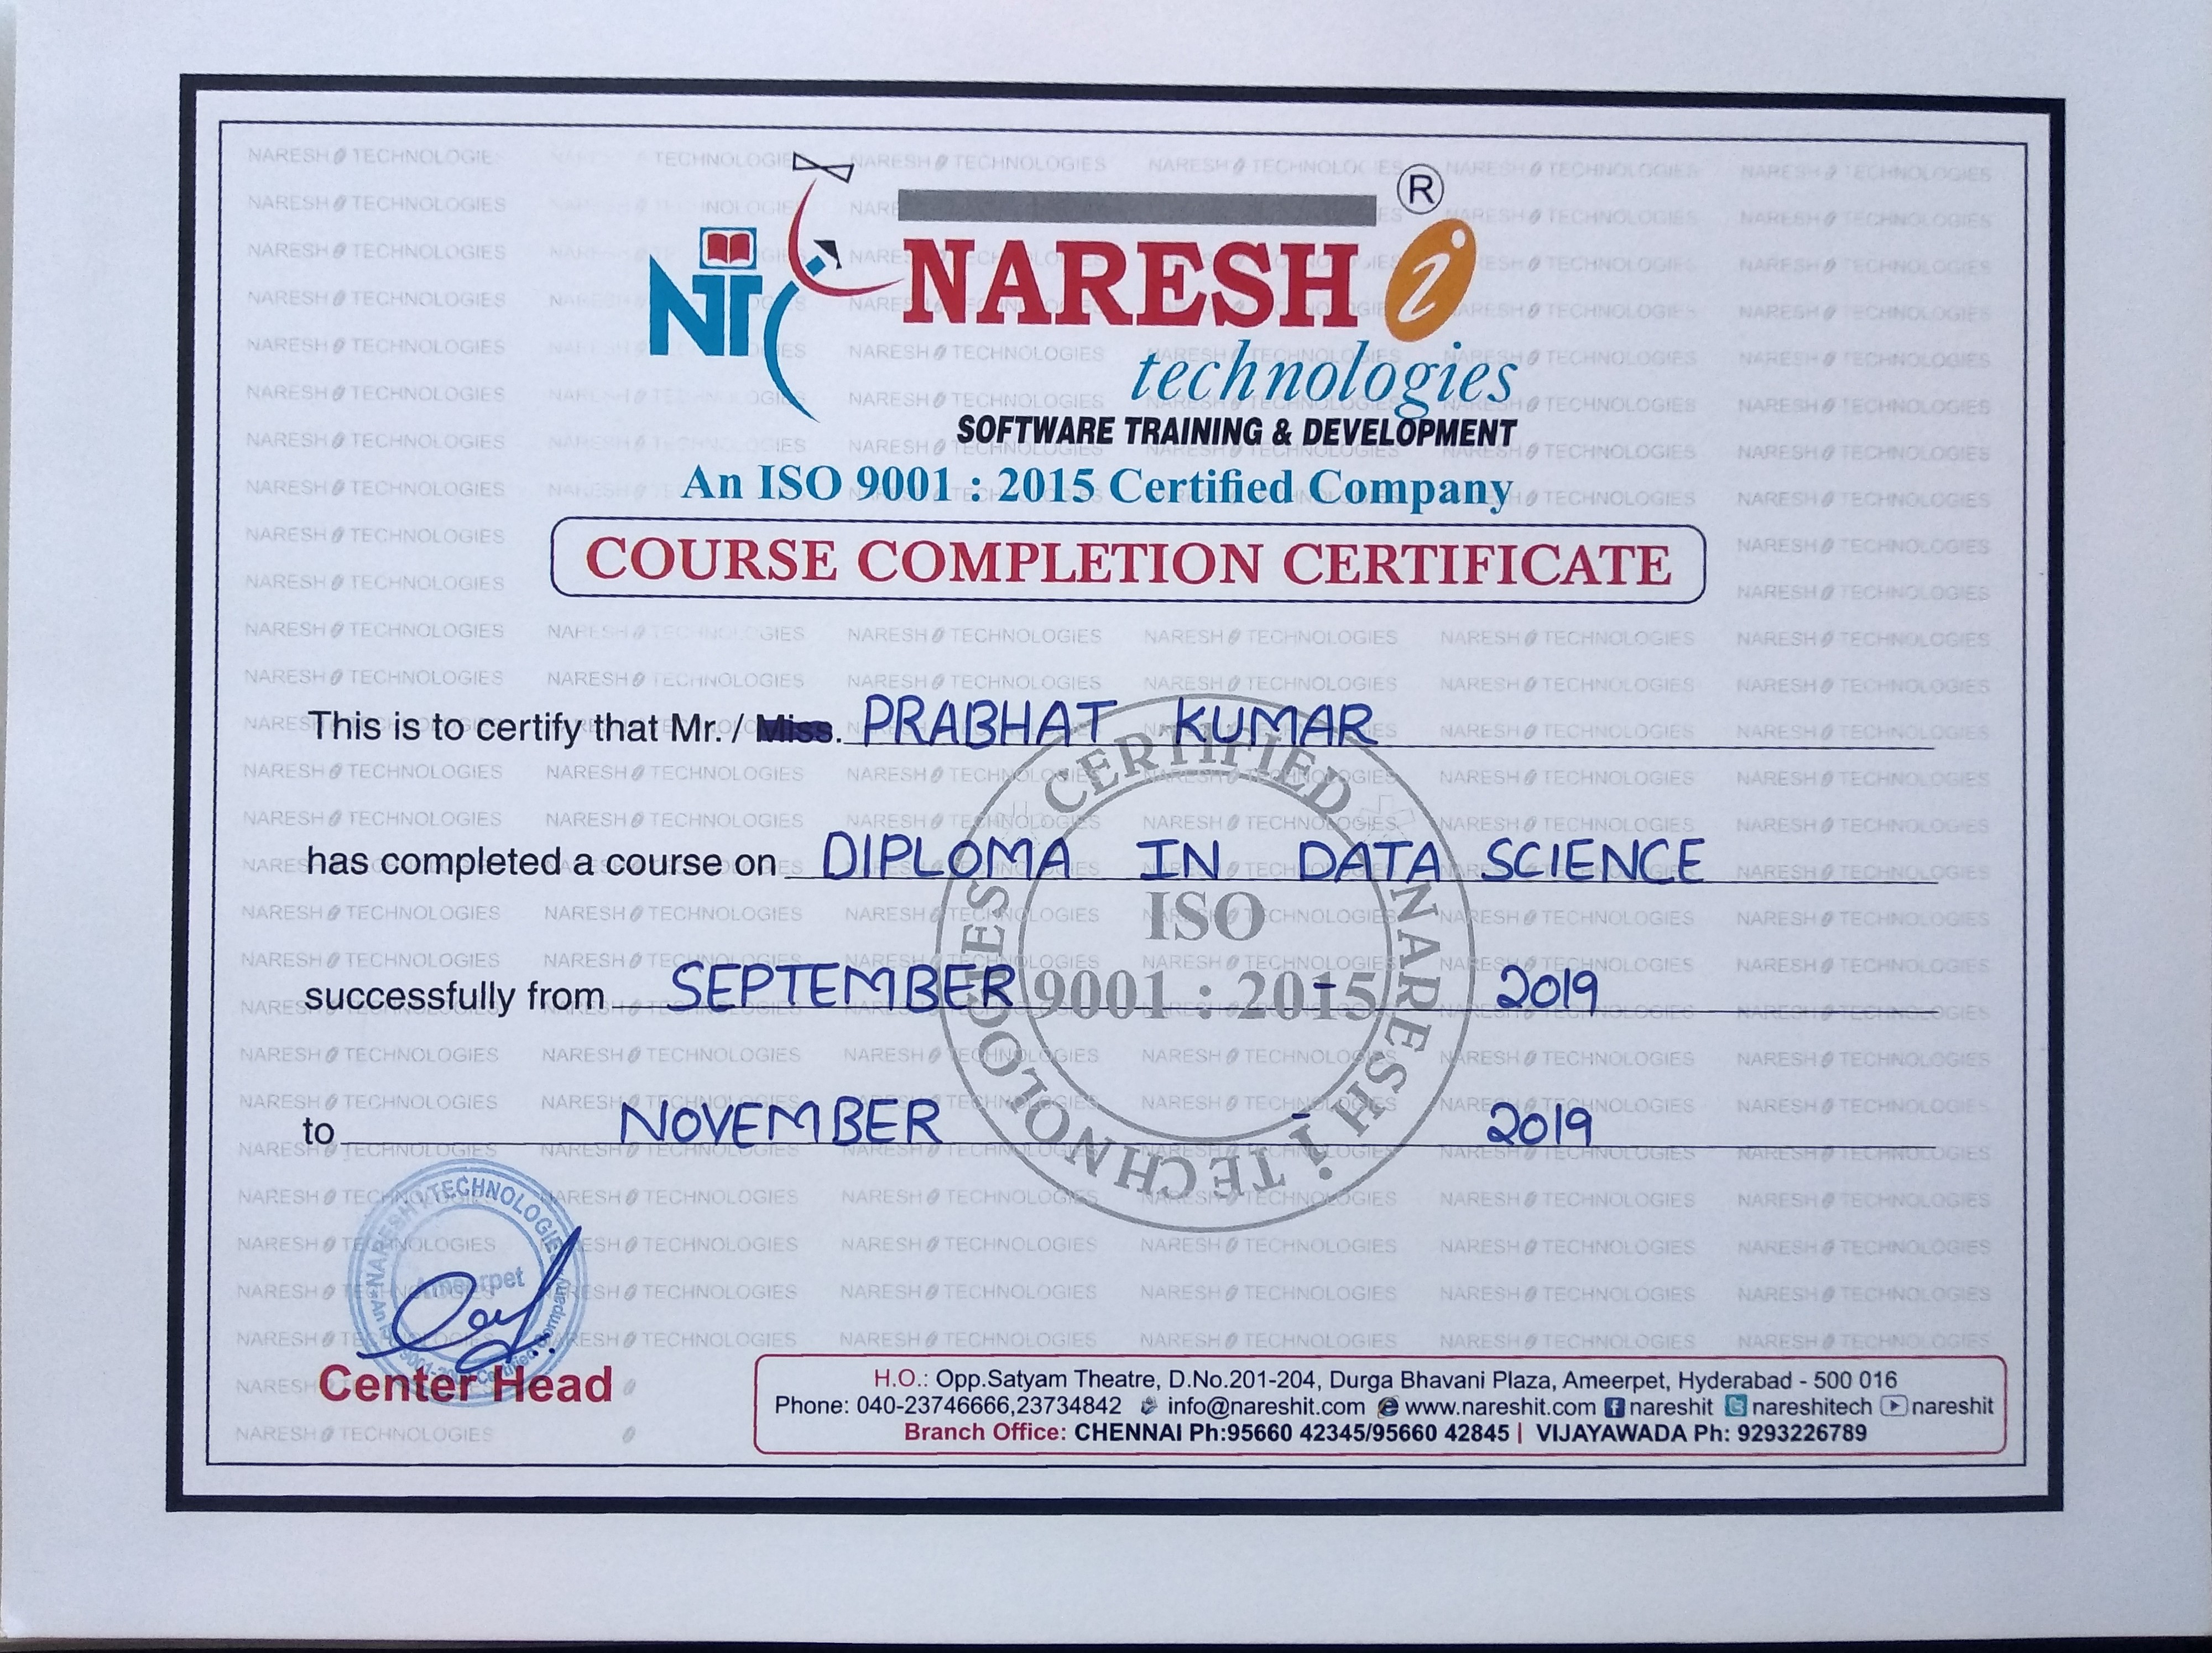 NT
NARESH i ®
technologies
SOFTWARE TRAINING & DEVELOPMENT
An ISO 9001 : 2015 Certified Company
COURSE COMPLETION CERTIFICATE
This is to certify that Mr. / Miss. PRABHAT KUMAR
has completed a course on DIPLOMA IN DATA SCIENCE
successfully from SEPTEMBER - 2019
to NOVEMBER - 2019
CERTIFIED NARESH i TECHNOLOGIES
ISO
9001 : 2015
NARESH i TECHNOLOGIES
Ameerpet
Center Head
H.O.: Opp.Satyam Theatre, D.No.201-204, Durga Bhavani Plaza, Ameerpet, Hyderabad - 500 016
Phone: 040-23746666,23734842 info@nareshit.com www.nareshit.com nareshit nareshitech nareshit
Branch Office: CHENNAI Ph:95660 42345/95660 42845 | VIJAYAWADA Ph: 9293226789